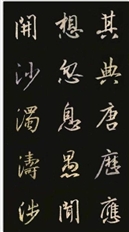 其典唐歷應
想忽息愚聞
開沙濁濤涉